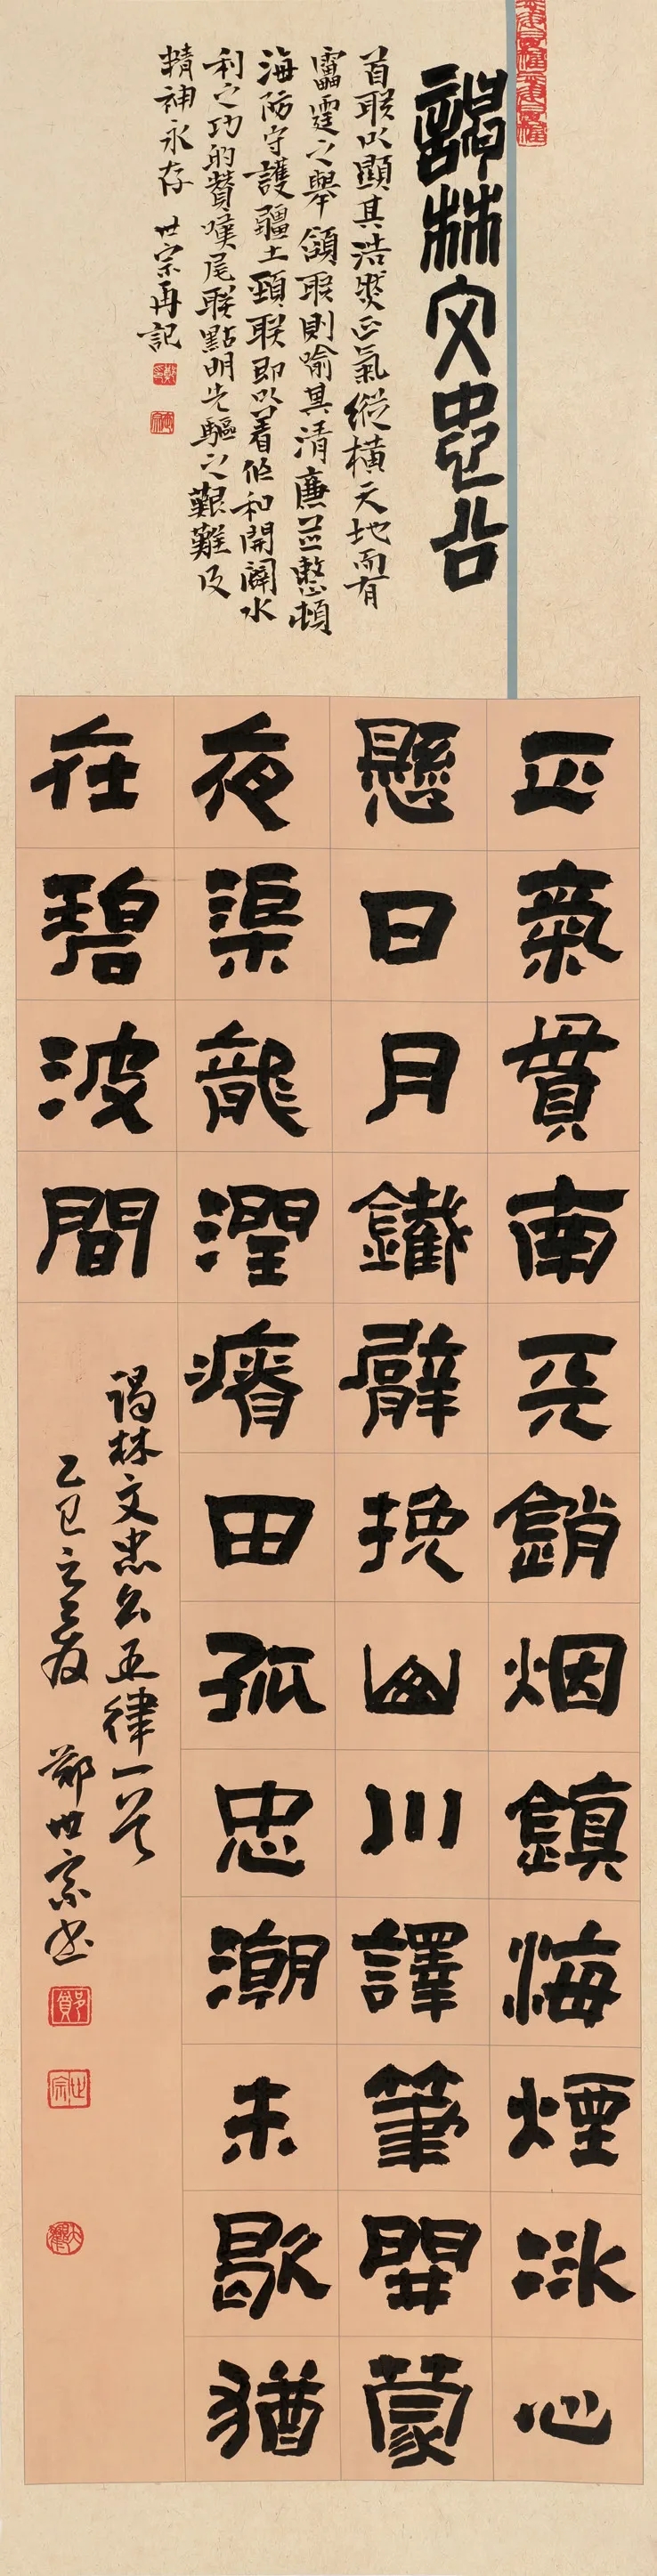 謁林文忠公
首联以顯其浩然正氣縱橫天地而有
雷霆之舉頷联則喻其清廉並整頓
海防守護疆土頸联即以着作和開闢水
利之功的贊嘆尾联點明先驅之艱難及
精神永存 世宗再記
正氣貫南天銷烟鎮海煙冰心
懸日月鐵臂挽山川譯筆開蒙
夜渠龍潤瘠田孤忠潮未歇猶
在碧波間
謁林文忠公五律一首
乙巳之夏 鄭世宗书
世宗